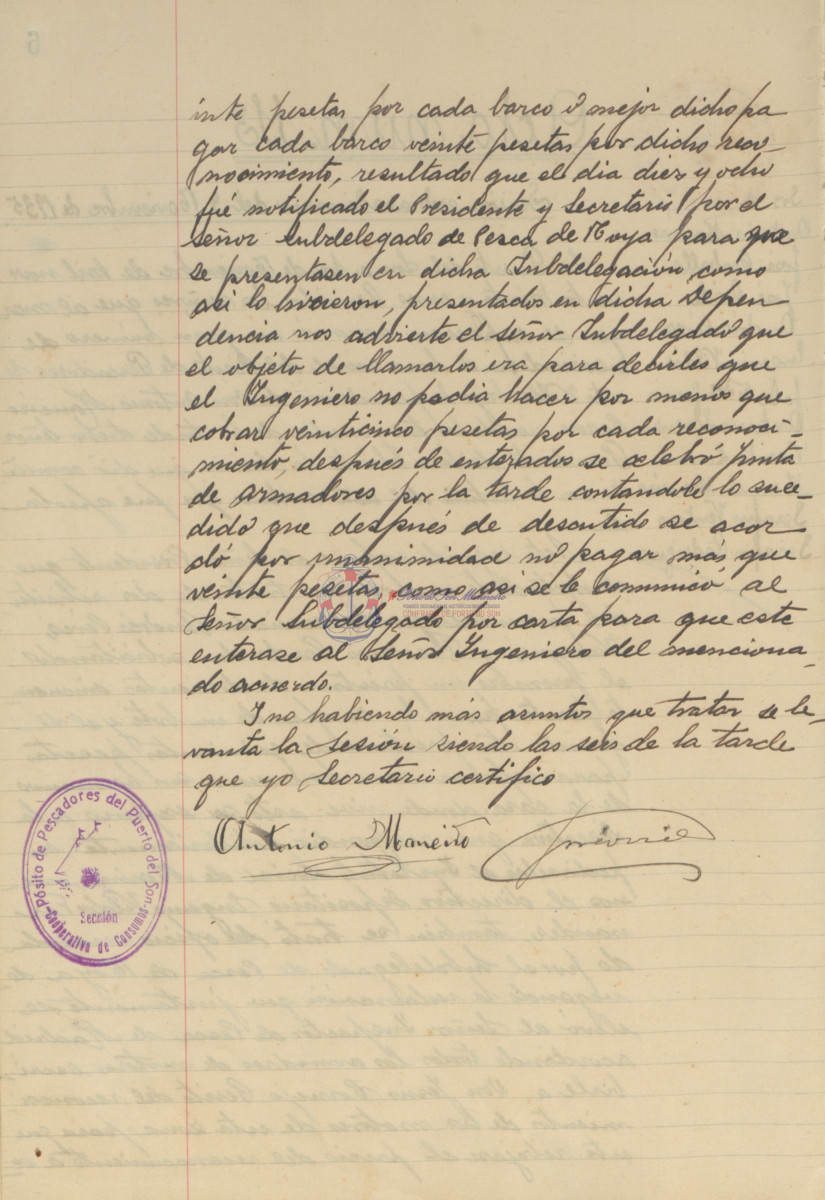 inte pesetas por cada barco ó mejor dicho pa
gar cada barco veinte pesetas por dicho reco-
nocimiento, resultado que el dia diez y ocho
fué notificado el Presidente y Secretario por el
señor Subdelegado de Pesca de Noya para que
se presentasen en dicha Subdelegación como
asi lo hicieron, presentados en dicha Depen
dencia nos advierte el Señor Subdelegado que
el objeto de llamarlos era para decirles que
el Ingeniero no podia hacer por menos que
cobrar veinticinco pesetas por cada reconoci-
miento, después de enterados se celebró junta
de armadores por la tarde contandole lo suce-
dido que después de descutido se acor
dó por unanimidad no pagar más que
veinte pesetas, como asi se le comunicó al
Señor Subdelegado por carta para que este
enterase al Señor Ingeniero del menciona-
do acuerdo.
I no habiendo más asuntos que tratar se le-
vanta la sesión siendo las seis de la tarde
que yo Secretario certifico
Antonio Maneiro
Pósito de Pescadores del Puerto del Son
Sección
-Cooperativa de Consumos-